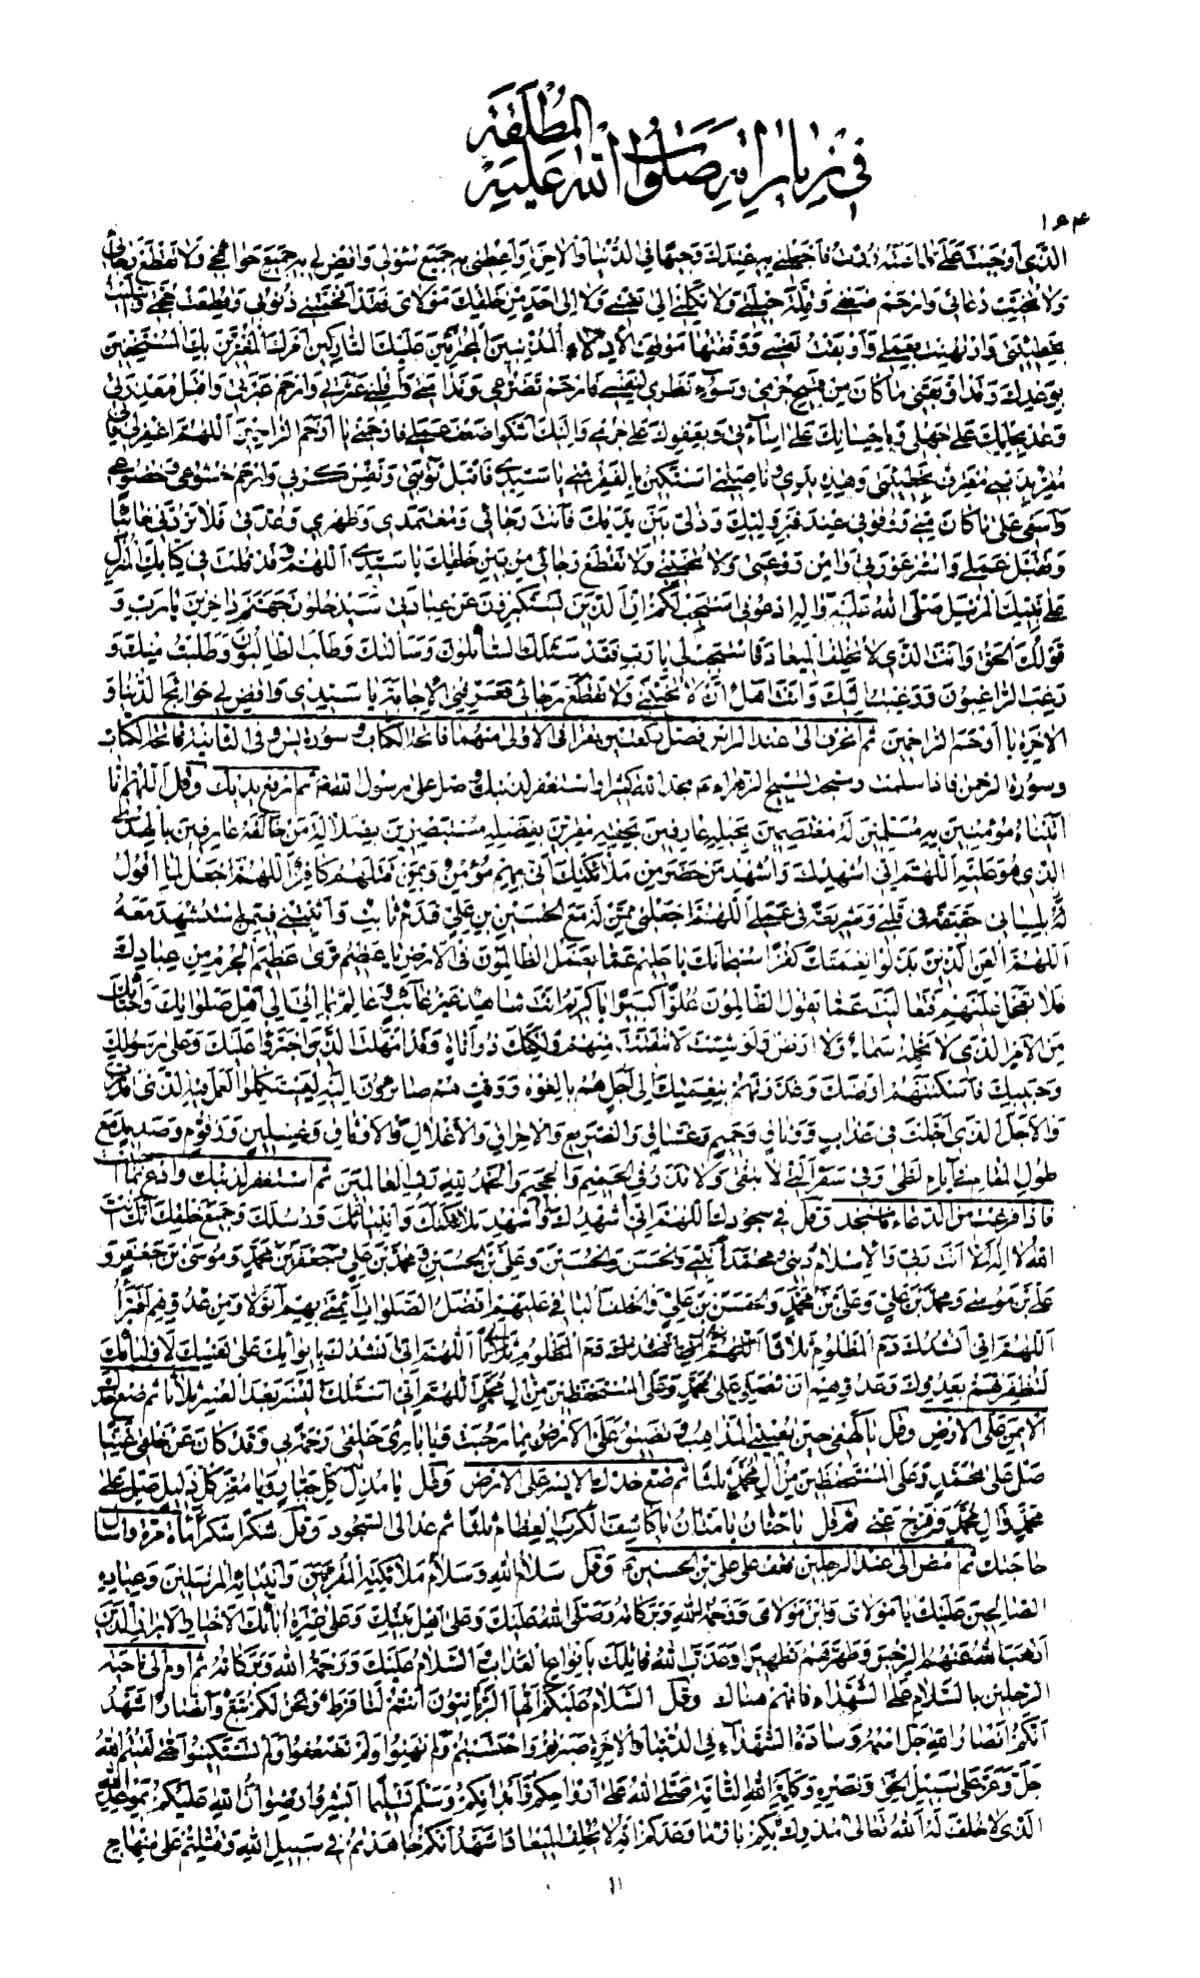 في زياراته صلوات الله عليه المطلقة
١٦٤
الذي أوجبت علي فاجعلني به عندك وجيها في الدنيا والآخرة وأعطني به جميع سؤلي واقض لي به جميع حوائجي ولا تقطع رجائي
ولا تخيب دعائي وارحم ضعفي وقلة حيلتي ولا تكلني إلى نفسي ولا إلى أحد من خلقك مولاي فقد أفحمتني ذنوبي وقطعت حجتي وابتليت
بخطيئتي وارتهنت بعملي وأوبقت نفسي ووقفتها موقف الأذلاء المذنبين المجترئين عليك التاركين أمرك المغترين بك المستخفين
بوعدك وقد أوبقني ما كان من قبيح جرمي وسوء نظري لنفسي فارحم تضرعي وندامتي وأقلني عثرتي وارحم عبرتي واقبل معذرتي
وعد بحلمك على جهلي وبإحسانك على إساءتي وبعفوك على جرمي وإليك أشكو ضعف عملي فارحمني يا أرحم الراحمين اللهم اغفر لي فإني
مقر بذنبي معترف بخطيئتي وهذه يدي وناصيتي أستكين بالفقر مني يا سيدي فاقبل توبتي ونفس كربي وارحم خشوعي وخضوعي
وأسفي على ما كان مني ووقوفي عند قبر وليك وذلي بين يديك فأنت رجائي ومعتمدي وظهري وعدتي فلا تردني خائبا
وتقبل عملي واستر عورتي وآمن روعتي ولا تخيبني ولا تقطع رجائي من بين خلقك يا سيدي اللهم وقد قلت في كتابك المنزل
على نبيك المرسل صلى الله عليه وآله ادعوني أستجب لكم إن الذين يستكبرون عن عبادتي سيدخلون جهنم داخرين يا رب و
قولك الحق وأنت الذي لا تخلف الميعاد فاستجب لي يا رب فقد سئلك السائلون وسألتك وطلب الطالبون وطلبت منك و
رغب الراغبون ورغبت إليك وأنت أهل أن لا تخيبني ولا تقطع رجائي فعرفني الإجابة يا سيدي واقض لي حوائج الدنيا و
الآخرة يا أرحم الراحمين ثم انحرف إلى عند الرأس فصل ركعتين تقرأ في الأولى منهما فاتحة الكتاب وسورة يس وفي الثانية فاتحة الكتاب
وسورة الرحمن فإذا سلمت وسبحت تسبيح الزهراء ع مجد الله كثيرا واستغفر لذنبك وصل على رسول الله ثم ترفع يديك وقل اللهم إنا
أتيناه مؤمنين به مسلمين له معتصمين بحبله عارفين بحقه مقرين بفضله مستبصرين بضلالة من خالفه عارفين بالهدى
الذي هو عليه اللهم إني أشهدك وأشهد من حضر من ملائكتك أني بهم مؤمن وبمن قتلهم كافر اللهم اجعل لما أقول
بلساني حقيقة في قلبي وشريعة في عملي اللهم اجعلني ممن له مع الحسين بن علي قدم ثابت وأثبتني فيمن استشهد معه
اللهم العن الذين بدلوا نعمتك كفرا سبحانك يا حليم عما يعمل الظالمون في الأرض يا عظيم ترى عظيم الجرم من عبادك
فلا تعجل عليهم فتعاليت عما يقول الظالمون علوا كبيرا يا كريم أنت شاهد غير غائب وعالم بما أتى إلى أهل صلواتك وأحبائك
من الأمر الذي لا تحمله سماء ولا أرض ولو شئت لانتقمت منهم ولكنك ذو أناة وقد أمهلت الذين اجترؤا عليك وعلى رسولك
وحبيبك فأسكنتهم أرضك وغذوتهم بنعمتك إلى أجل هم بالغوه ووقت هم صائرون إليه ليستكملوا العمل فيه الذي قدرت
والأجل الذي أجلت في عذاب ووثاق وحميم وغساق والضريع والإحراق والأغلال والأوثاق وغسلين وزقوم وصديد مع
طول المقام في أيام لظى وفي سقر التي لا تبقي ولا تذر في الحميم والجحيم والحمد لله رب العالمين ثم استغفر لذنبك وادع بما أحببت
فإذا فرغت من الدعاء فاسجد وقل في سجودك اللهم إني أشهدك وأشهد ملائكتك وأنبيائك ورسلك وجميع خلقك أنك أنت
الله لا إله إلا أنت ربي والإسلام ديني ومحمدا نبيي والحسن والحسين وعلي بن الحسين ومحمد بن علي وجعفر بن محمد وموسى بن جعفر و
علي بن موسى ومحمد بن علي وعلي بن محمد والحسن بن علي والخلف الباقي عليهم أفضل الصلوات أئمتي بهم أتولى ومن عدوهم أتبرأ
اللهم إني أنشدك دم المظلوم ثلاثا اللهم إني أنشدك بإيوائك على نفسك لأوليائك
لتظفرنهم بعدوك وعدوهم أن تصلي على محمد وعلى المستحفظين من آل محمد اللهم إني أسئلك اليسر بعد العسر ثلاثا ثم ضع خدك
الأيمن على الأرض وقل يا كهفي حين تعييني المذاهب وتضيق علي الأرض بما رحبت ويا بارئ خلقي رحمة بي وقد كان عن خلقي غنيا
صل على محمد وعلى المستحفظين من آل محمد ثلثا ثم ضع خدك الأيسر على الأرض وقل يا مذل كل جبار ويا معز كل ذليل صل على
محمد وآل محمد وفرج عني ثم قل يا حنان يا منان يا كاشف الكرب العظام ثلثا ثم عد إلى السجود وقل شكرا شكرا مأة مرة واسئل
حاجتك ثم امض إلى عند الرجلين فقف على علي بن الحسين ع وقل سلام الله وسلام ملائكته المقربين وأنبيائه المرسلين وعباده
الصالحين عليك يا مولاي وابن مولاي ورحمة الله وبركاته وصلى الله عليك وعلى أهل بيتك وعلى عترة آبائك الأخيار الأبرار الذين
أذهب الله عنهم الرجس وطهرهم تطهيرا وعذب الله قاتلك بأنواع العذاب والسلام عليك ورحمة الله وبركاته ثم أوم إلى ناحية
الرجلين بالسلام على الشهداء فإنهم هناك وقل السلام عليكم أيها الربانيون أنتم لنا فرط ونحن لكم تبع وأنصار أشهد
أنكم أنصار الله جل اسمه وسادة الشهداء في الدنيا والآخرة صبرتم واحتسبتم ولم تهنوا ولم تضعفوا ولم تستكينوا حتى لقيتم الله
جل وعز على سبيل الحق ونصره وكلمة الله التامة صلى الله على أرواحكم وأبدانكم وسلم تسليما أبشروا رضوان الله عليكم بموعد الله
الذي لا خلف له الله تعالى مدرك بكم ثار ما وعدكم إنه لا يخلف الميعاد أشهد أنكم جاهدتم في سبيل الله وقتلتم على منهاج
١١